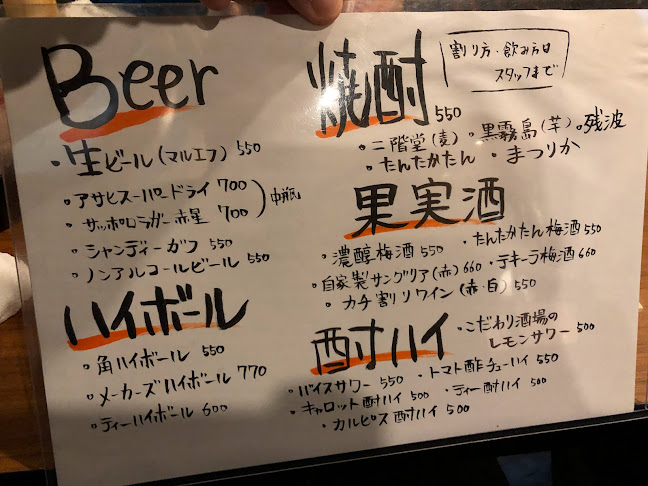 Beer
・生ビール(マルエフ) 550
・アサヒスーパードライ 700
・サッポロラガー赤星 700
中瓶
・シャンディーガフ 550
・ノンアルコールビール 550
ハイボール
・角ハイボール 550
・メーカーズハイボール 770
・ティーハイボール 600
焼酎 550
割り方・飲み方は
スタッフまで
・二階堂(麦) ・黒霧島(芋) 。残波
・たんたかたん ・まつりか
果実酒
・濃醇梅酒 550 ・たんたかたん梅酒 550
・自家製サングリア(赤) 660 ・テキーラ梅酒 660
・カチ割りワイン(赤・白) 550
酎ハイ
・こだわり酒場の
レモンサワー 500
・バイスサワー 550 ・トマト酢チューハイ 550
・キャロット酎ハイ 500 ・ティー酎ハイ 500
・カルピス酎ハイ 500